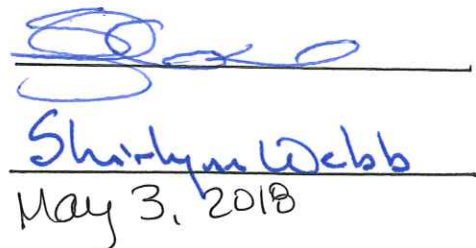 Shirlyn Webb
May 3, 2018